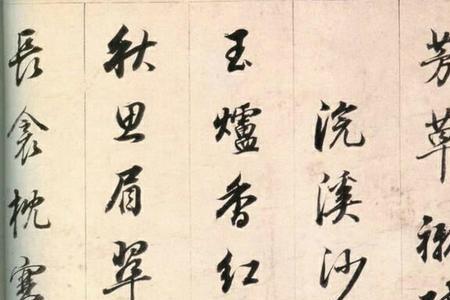 芳草
浣溪沙
玉爐香紅
秋思眉翠
長衾枕寒